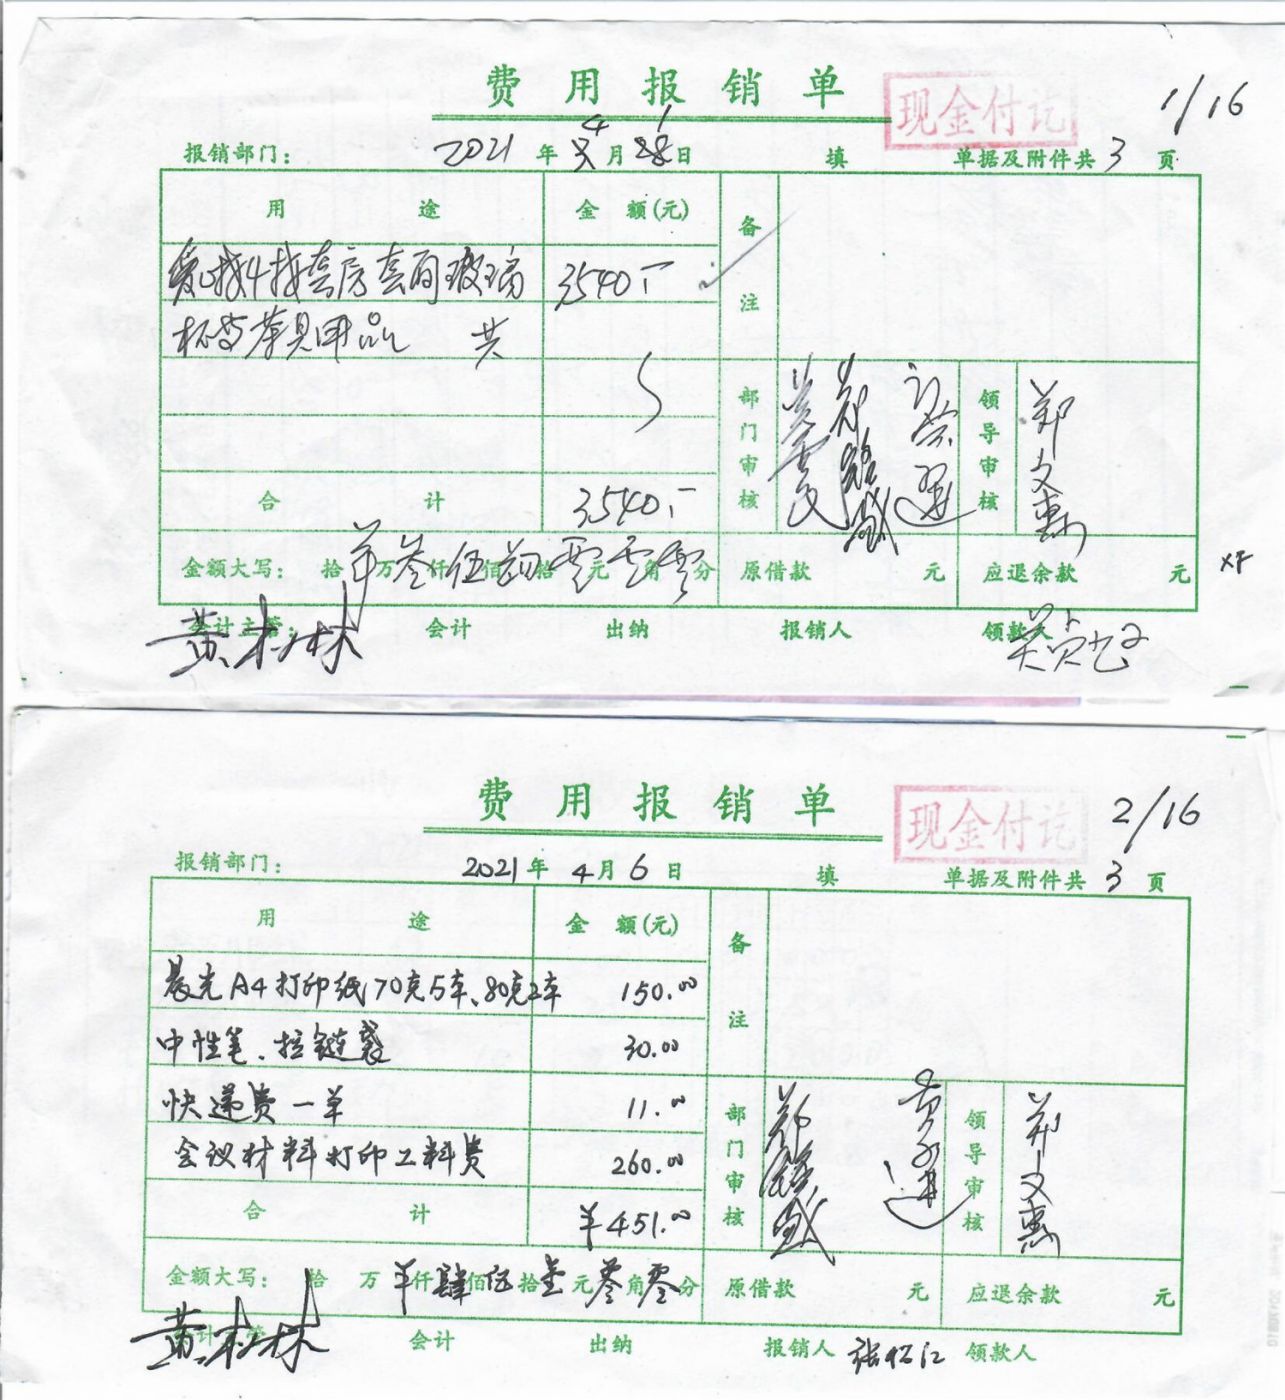 费用报销单
现金付讫
1/16
报销部门： 2021年4月1日 填 单据及附件共3页
用途 金额(元) 备注
4栋套房套内玻璃 3540.-
杯与茶具用品 共
合计 3540.-
部门审核 领导审核 郑文惠
金额大写： 拾 万叁仟伍佰肆拾零元零角零分 原借款 元 应退余款 元
XF
会计主管： 黄木林 会计 出纳 报销人 领款人
费用报销单
现金付讫
2/16
报销部门： 2021年4月6日 填 单据及附件共3页
用途 金额(元) 备注
晨光A4打印纸70克5本、80克2本 150.00
中性笔、拉链袋 30.00
快递费一单 11.00
会议材料打印工料费 260.00
合计 ¥451.00
部门审核 领导审核 郑文惠
金额大写： 拾 万¥仟肆佰伍拾壹元零角零分 原借款 元 应退余款 元
黄木林 会计 出纳 报销人 领款人